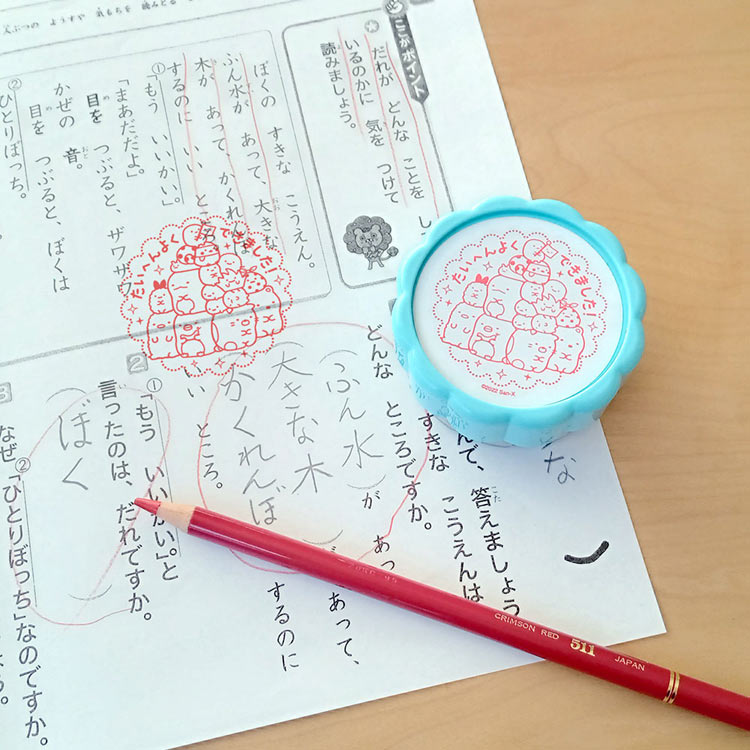 人ぶつの ようすや 気もちを 読みとる
ここがポイント
だれが どんな ことを し
いるのかに 気を つけて
読みましょう。
ぼくの すきな こうえん。
ふん水が あって、大きな
木が あって、かくれんぼ
するのに いい ところ
①「もう いいかい。」
「まあだだよ。」
目を つぶると、ザワザワ
かぜの 音。
目を つぶると、ぼくは
②ひとりぼっち。
たいへんよくできました!
たいへんよくできました!
©2022 San-X
んで、答えましょう
すきな こうえんは
どんな ところですか。
(ふん水)が あっ
大きな木 が あって、
(かくれんぼ)するのに
いい ところ。
2
①「もう いいかい。」と
言ったのは、だれですか。
(ぼく)
3
②「ひとりぼっち」なのですか。
なぜ
CRIMSON RED 511 JAPAN